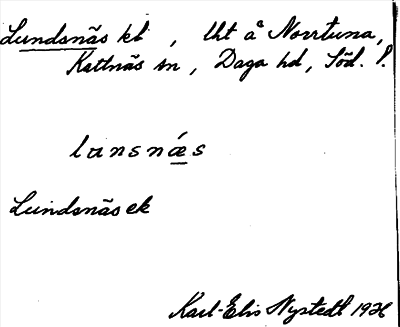 Lundsnäs kl, lht å Norrtuna,
Kattnäs sn, Daga hd, Söd. l.
lunsnǽs
Lundsnäs ek
Karl-Elis Nystedt 1926